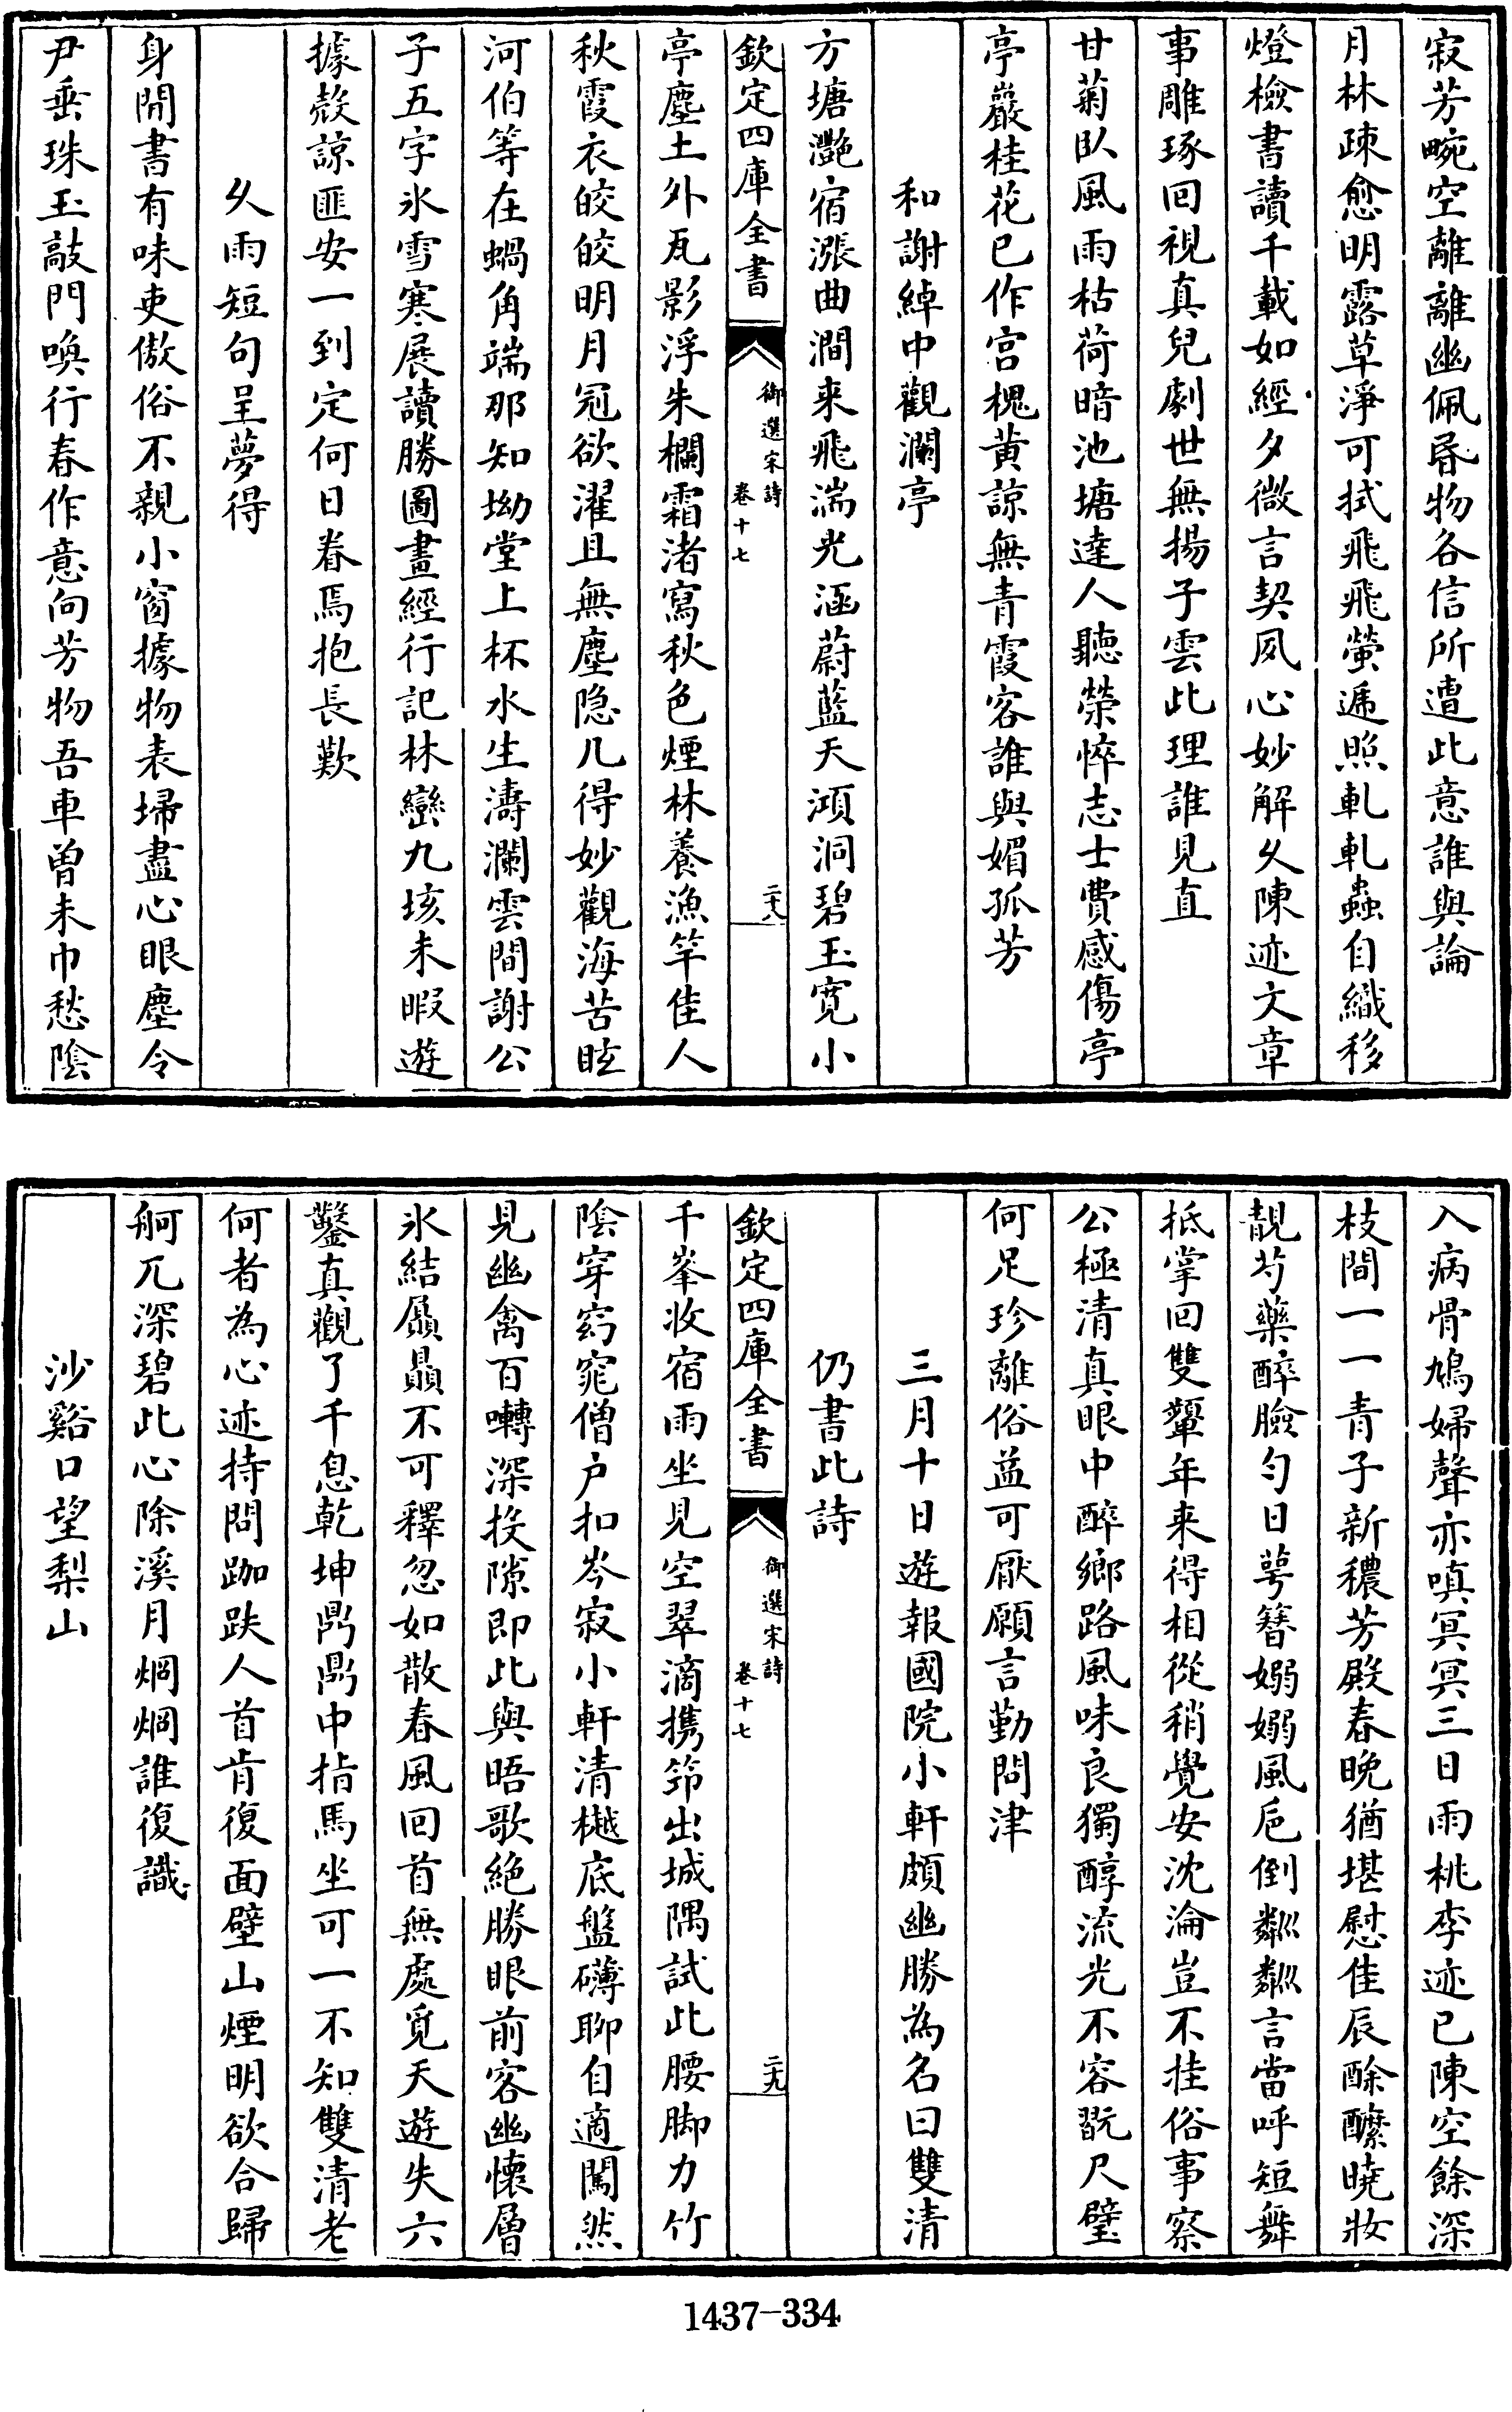 寂芳畹空離離幽佩昬物各信所遭此意誰與論
月林疎愈明露草淨可拭飛飛螢遞照軋軋蟲自織移
燈檢書讀千載如經夕微言契夙心妙解乆陳迹文章
事雕琢回視真兒劇世無揚子雲此理誰見直
甘菊臥風雨枯荷暗池塘達人聽榮悴志士費感傷亭
亭巖桂花已作宫槐黄諒無青霞客誰與媚孤芳
和謝綽中觀瀾亭
方塘灔宿漲曲澗来飛湍光涵蔚藍天澒洞碧玉寛小
欽定四庫全書
御選宋詩
卷十七
二十八
亭塵土外瓦影浮朱欄霜渚寫秋色煙林養漁竿佳人
秋霞衣皎皎明月冠欲濯且無塵隐几得妙觀海苦眩
河伯等在蝸角端那知坳堂上杯水生濤瀾雲間謝公
子五字氷雪寒展讀勝圖畫經行記林巒九垓未暇遊
據殻諒匪安一到定何日眷焉抱長歎
乆雨短句呈夢得
身閒書有味吏傲俗不親小窗據物表埽盡心眼塵令
尹垂珠玉敲門喚行春作意向芳物吾車曾未巾愁陰
入病骨鳩婦聲亦嗔冥冥三日雨桃李迹已陳空餘深
枝間一一青子新穠芳殿春晚猶堪慰佳辰酴醾曉妝
靚芍藥醉臉勻日萼簪嫋嫋風巵倒粼粼言當呼短舞
抵掌回雙顰年来得相從稍覺安沈淪豈不挂俗事察
公極清真眼中醉鄉路風味良獨醇流光不容翫尺璧
何足珍離俗益可厭願言勤問津
三月十日遊報國院小軒頗幽勝為名曰雙清
仍書此詩
欽定四庫全書
御選宋詩
卷十七
二十九
千峯收宿雨坐見空翠滴攜笻出城隅試此腰脚力竹
陰穿窈窕僧户扣岑寂小軒清樾底盤礴聊自適闖然
見幽禽百囀深投隙即此與晤歌絶勝眼前客幽懷層
氷結屭贔不可釋忽如散春風回首無處覓天遊失六
鑿真觀了千息乾坤鼎鼎中指馬坐可一不知雙清老
何者為心迹持問跏趺人首肯復面壁山煙明欲合歸
舸兀深碧此心除溪月烱烱誰復識
沙谿口望梨山
1437-334